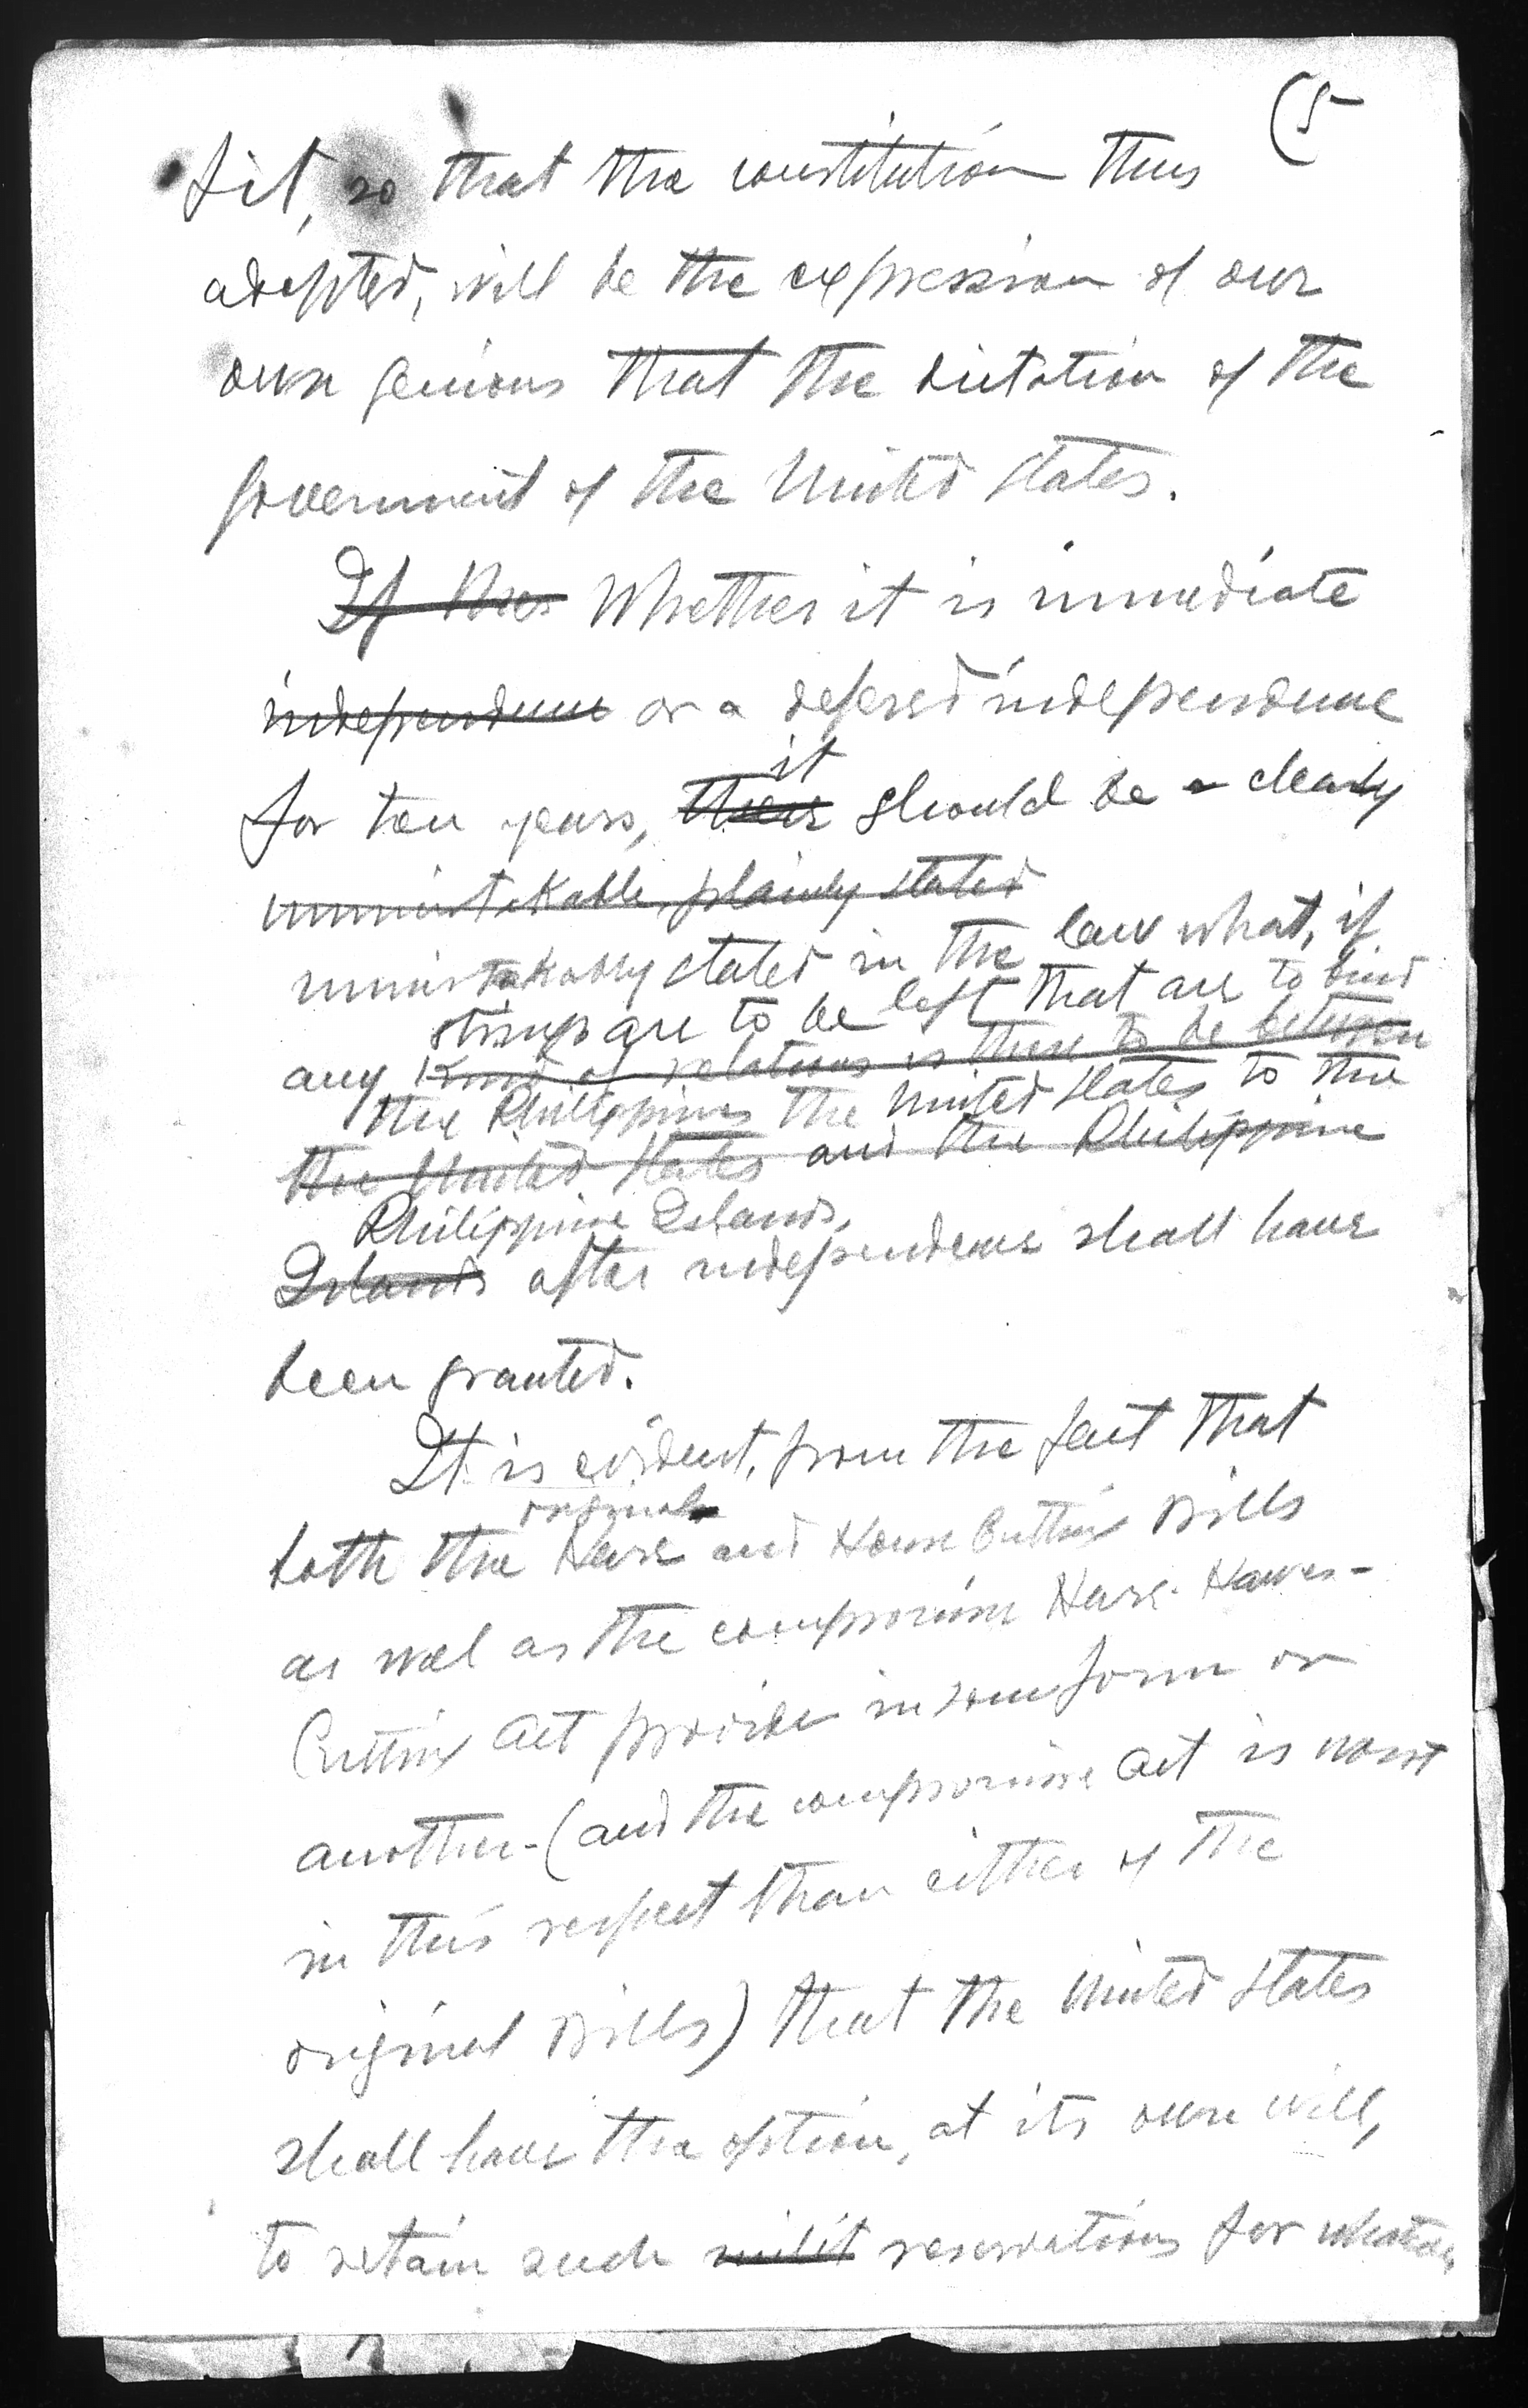 (5
fit, so that the constitution thus
adopted, will be the expression of our
own genious that the dictation of the
government of the United States.
If Whether it is immediate
independence or a defered independence
it
for ten years, there should be a clearly
unmistakable, plainly stated
unmistakably stated in the law what, if
strings are to be left that are to bind
any kind of relations is there to be between
the Philippines the United States to the
the United States and the Philippine
Philippine Islands,
Islands after independence shall have
been granted.
It is evident, from the fact that
original
both the Hare and Hawes Cutting Bills
as well as the compromise Hare-Hawes-
Cutting Act provide in some form or
another-(and the compromise Act is worst
in this respect than either of the
original Bills) that the United States
shall have the option, at its own will,
to retain such milit reservations for whatever